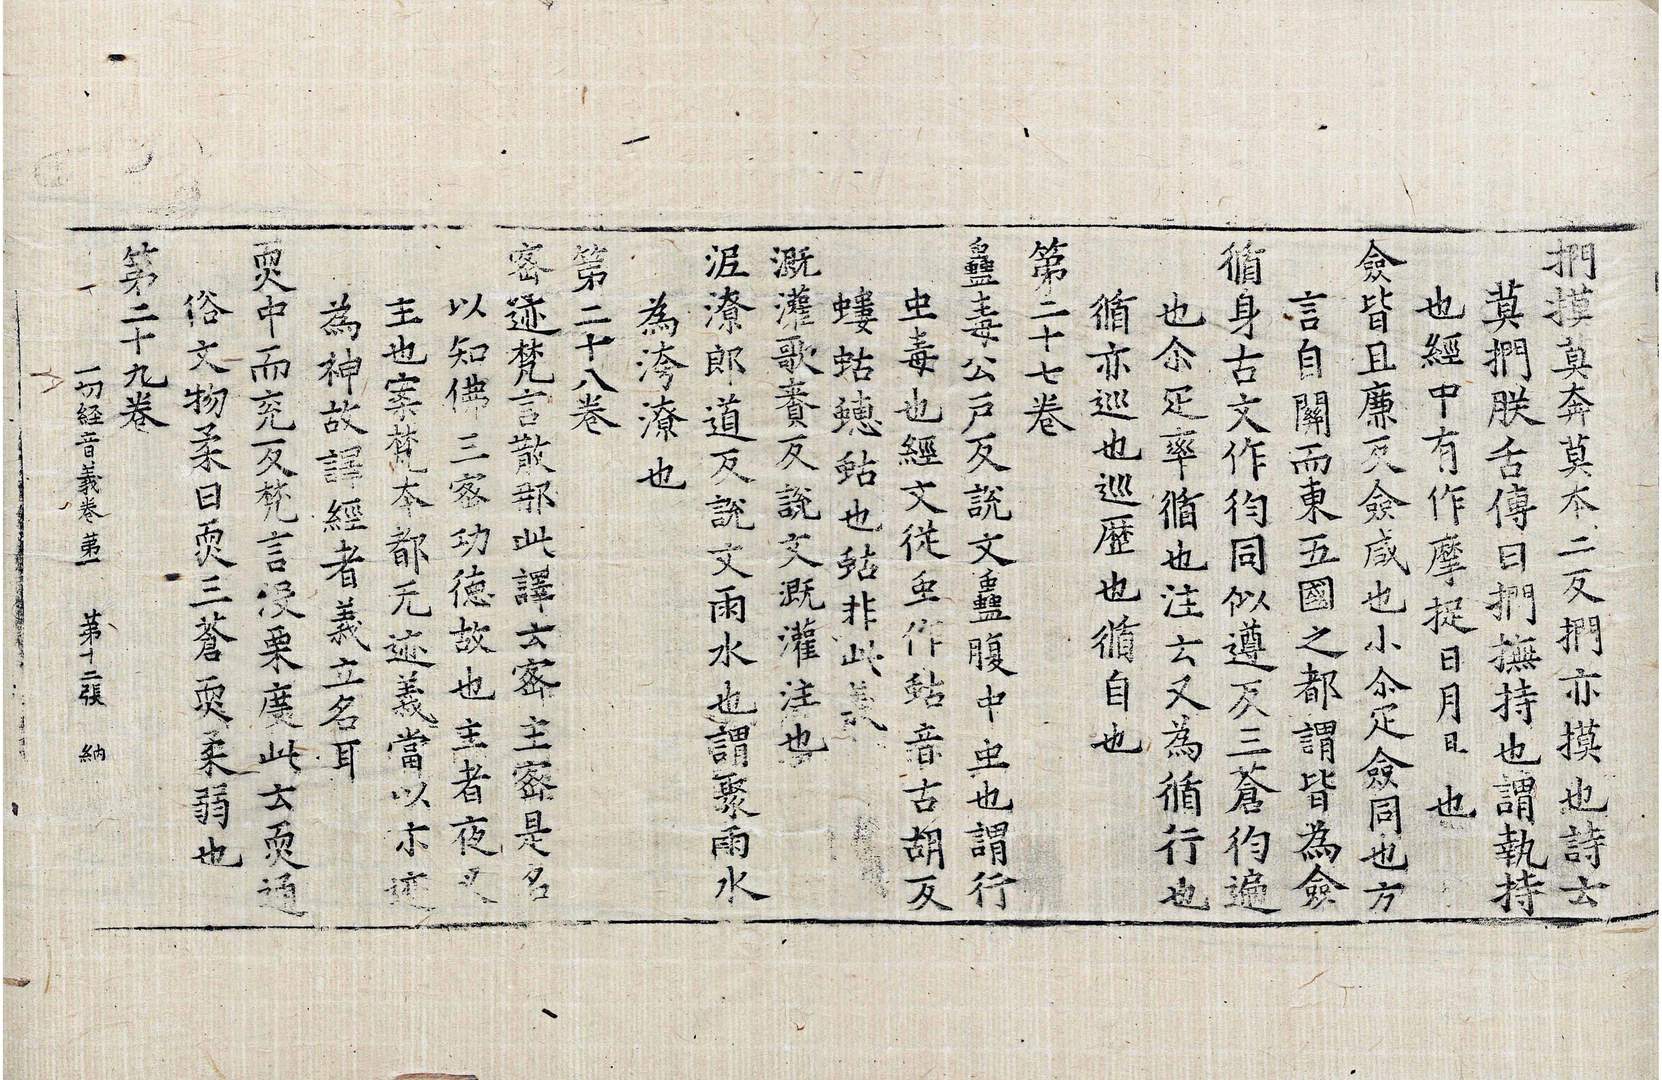 捫摸莫奔莫本二反捫亦摸也詩云
莫捫朕舌傳曰捫撫持也謂執持
也經中有作摩捉日月是也
僉皆且廉反僉咸也小尒疋僉同也方
言自關而東五國之都謂皆為僉
循身古文作徇同似遵反三蒼徇遍
也尒疋率循也注云又為循行也
循亦巡也巡歷也循自也
第二十七卷
蠱毒公戶反說文蠱腹中虫也謂行
虫毒也經文從虫作蛄音古胡反
螻蛄蟪蛄也蛄非此義
溉灌歌賚反說文溉灌注也
泥潦郎道反說文雨水也謂聚雨水
為洿潦也
第二十八卷
密迹梵言散那此譯云密主密是名
以知佛三密功德故也主者夜叉
主也案梵本都无迹義當以亦迹
為神故譯經者義立名耳
耎中而兖反梵言浸栗度此云耎通
俗文物柔曰耎三蒼耎柔弱也
第二十九卷
一切経音義卷第一 第十二張 納